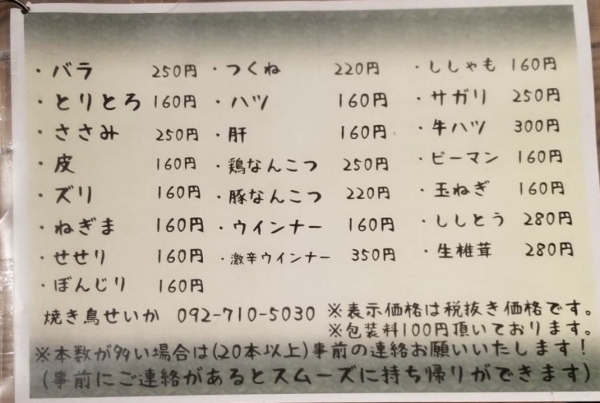 ・バラ 250円 ・つくね 220円 ・ししゃも 160円
・とりとろ 160円 ・ハツ 160円 ・サガリ 250円
・ささみ 250円 ・肝 160円 ・牛ハツ 300円
・皮 160円 ・鶏なんこつ 250円 ・ピーマン 160円
・ズリ 160円 ・豚なんこつ 220円 ・玉ねぎ 160円
・ねぎま 160円 ・ウインナー 160円 ・ししとう 280円
・せせり 160円 ・激辛ウインナー 350円 ・生椎茸 280円
・ぼんじり 160円
焼き鳥せいか 092-710-5030 ※表示価格は税抜き価格です。
※包装料100円頂いております。
※本数が多い場合は(20本以上)事前の連絡お願いいたします!
(事前にご連絡があるとスムーズに持ち帰りができます)